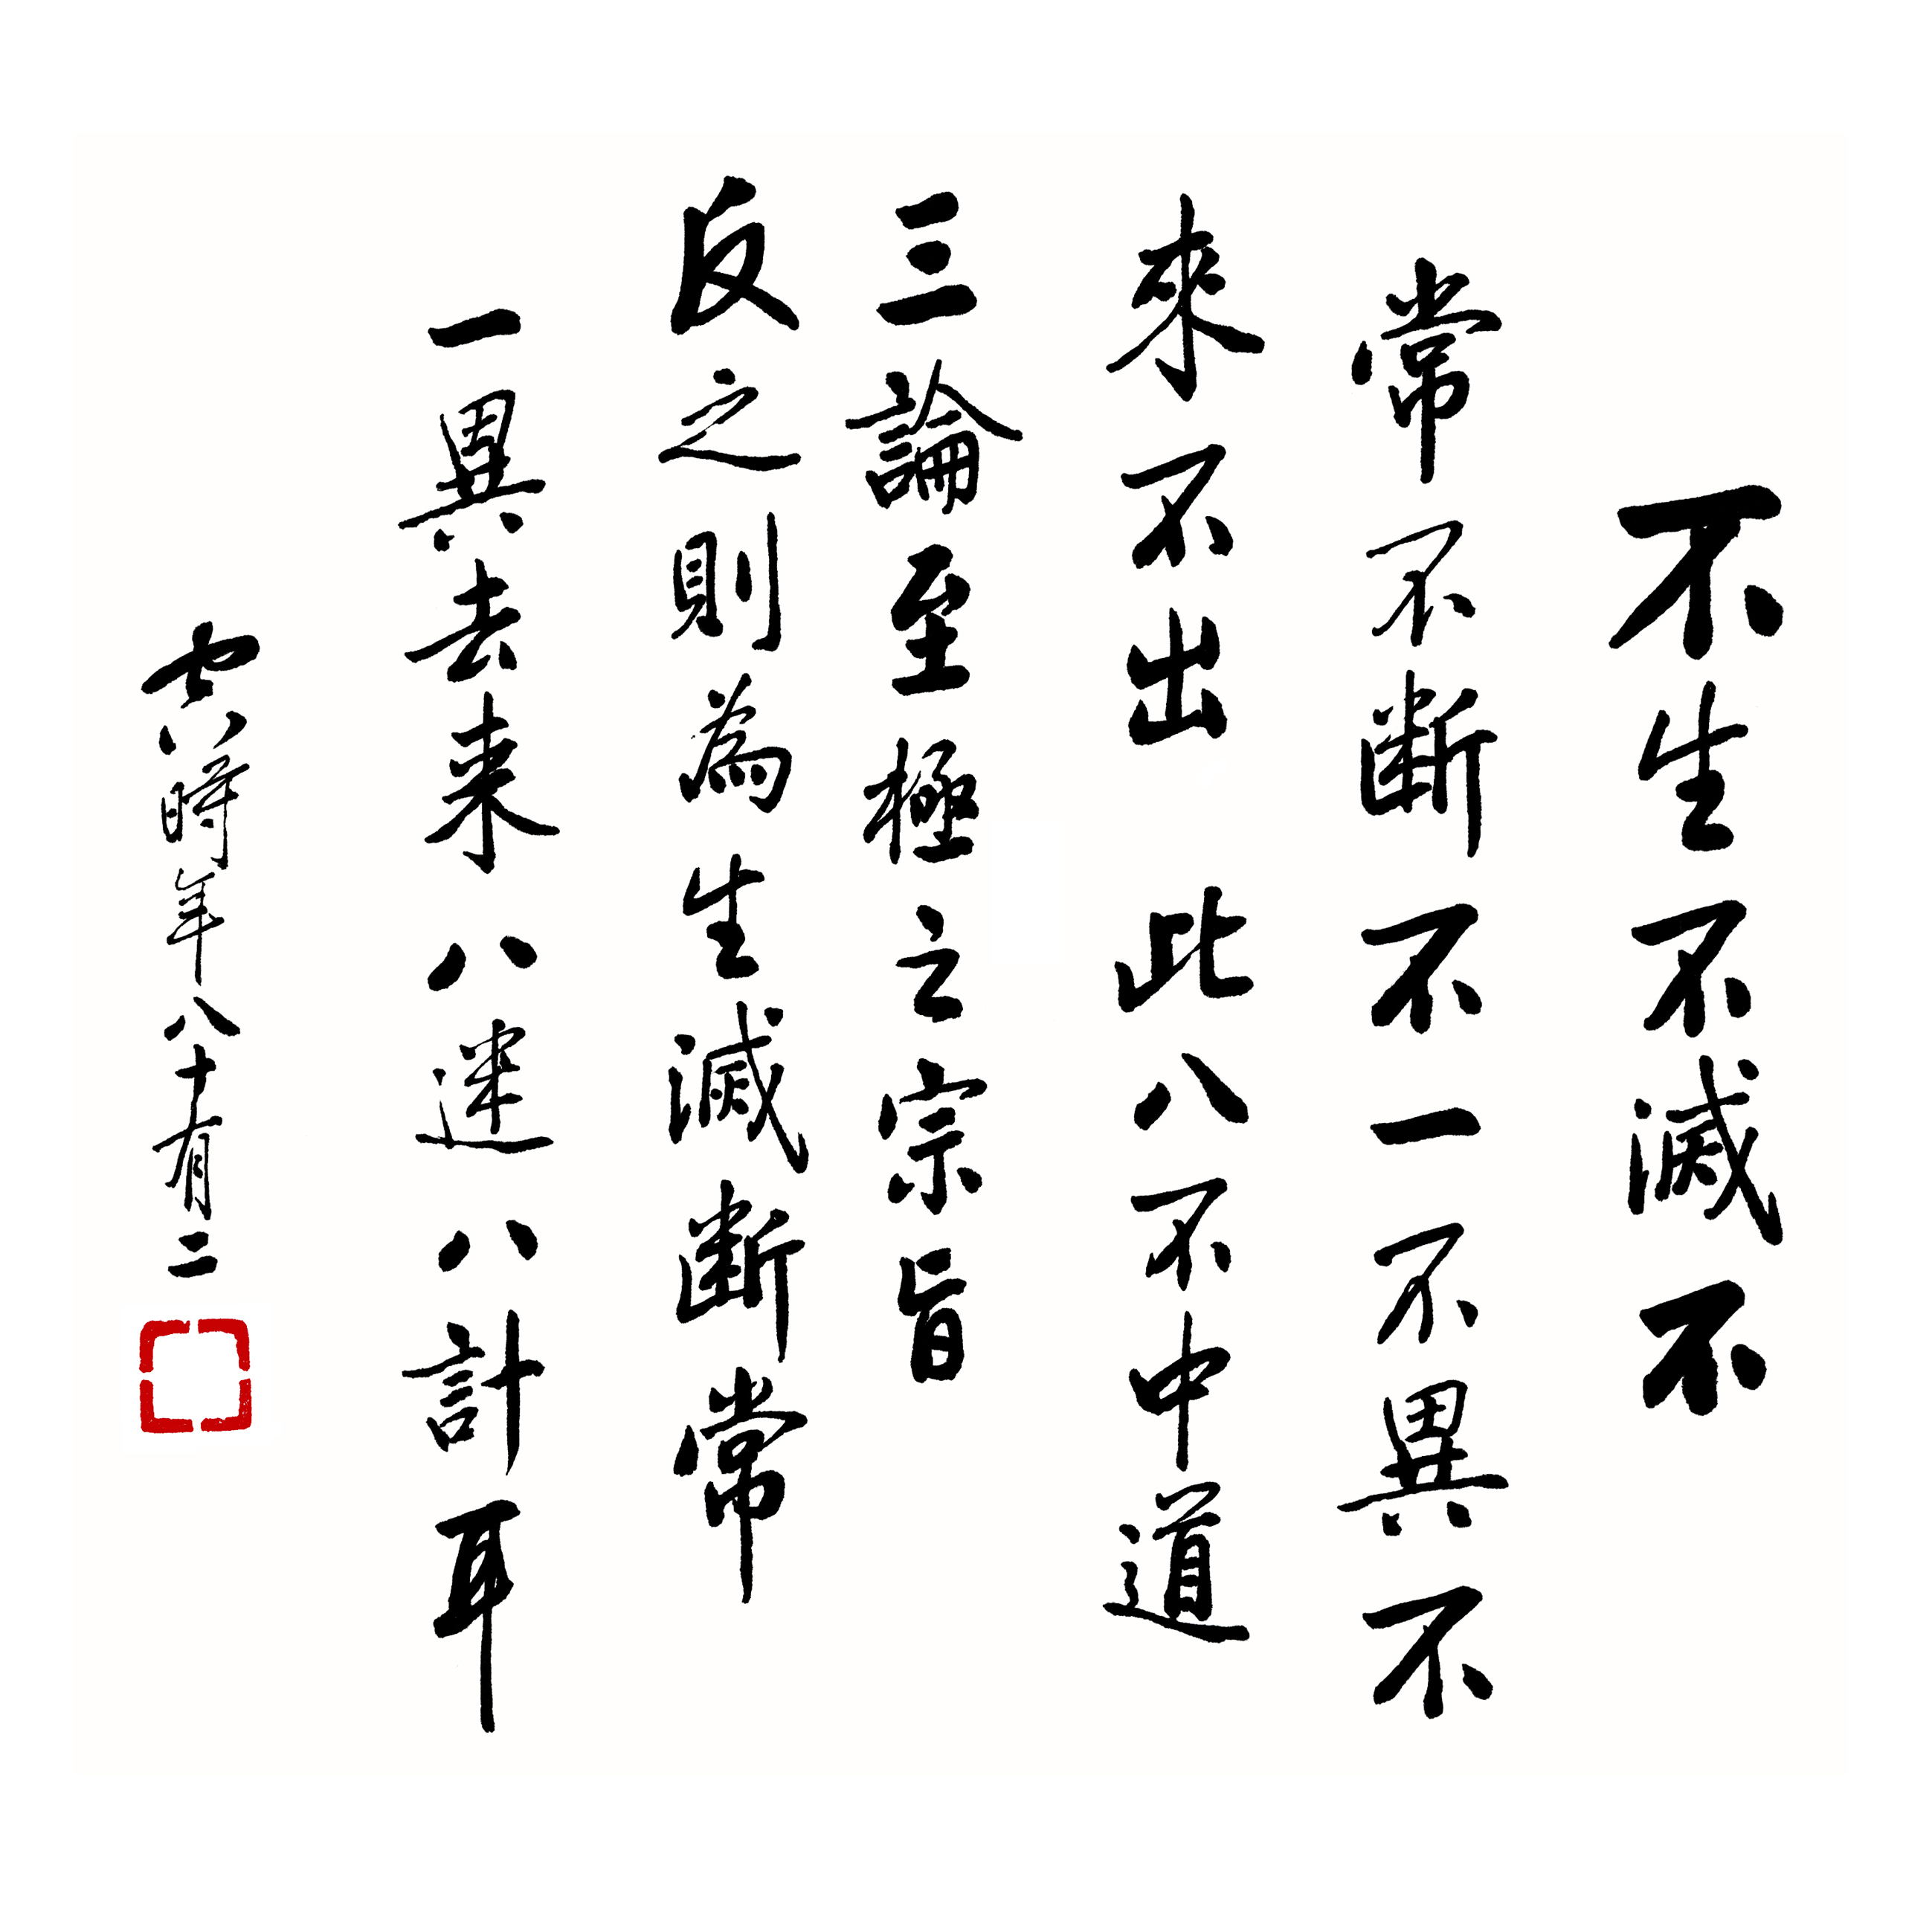 不生不滅不
常不斷不一不異不
來不出此八不中道
三論至極之宗旨
反之則為生滅斷常
一異去来八八計耳
公時年八十有二